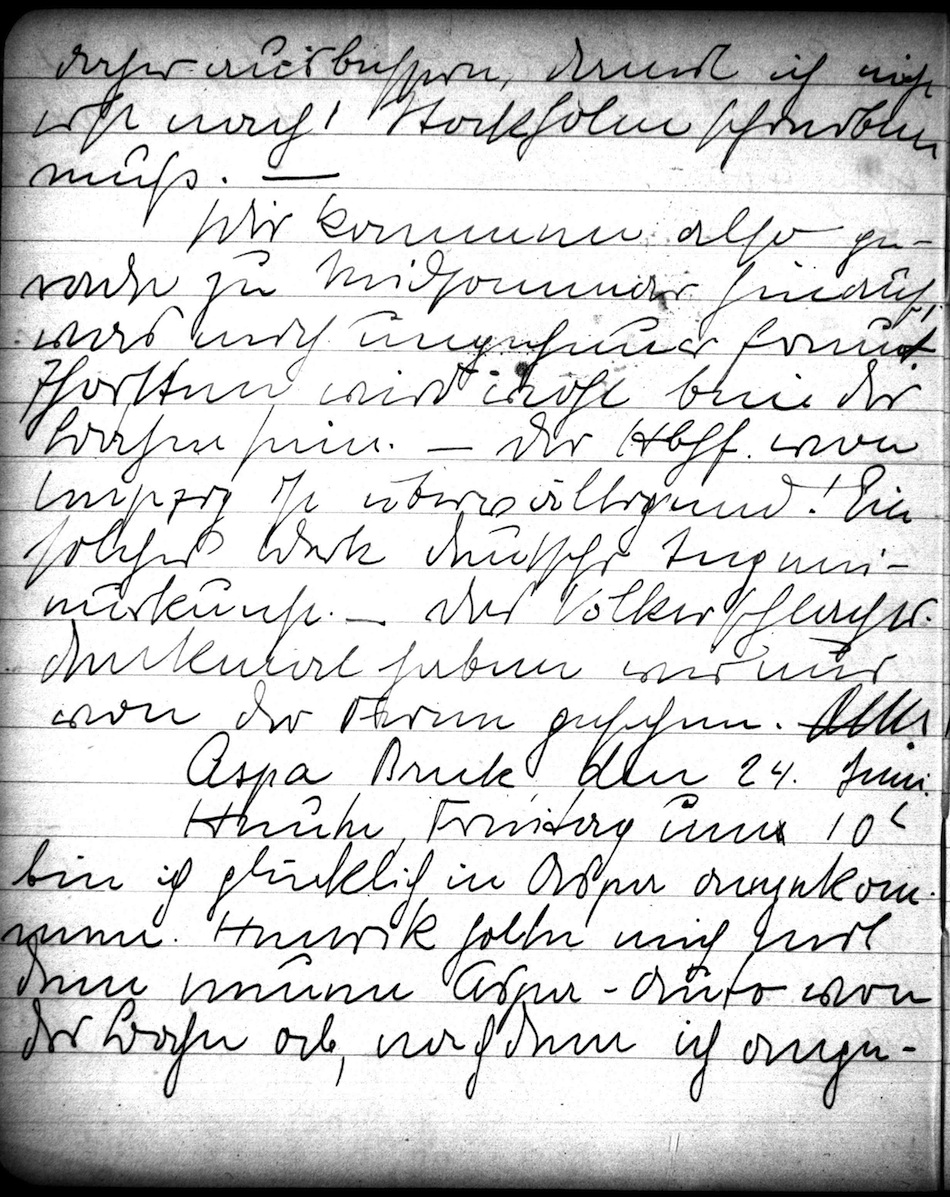 daher ausbessern, damit ich nicht
erst nach Stockholm schreiben
muß. —
Wir kommen also ge-
rade zu Midsommar hinauf,
was mich ungeheuer freut
Thorsten wird wohl bei der
Bahn sein. — Der Hbhf. von
Leipzig ist überwältigend! Ein
solches Werk deutscher Ingeni-
eurkunst. — Das Völkerschlacht-
denkmal haben wir nur
von der Ferne gesehen.
Aspa Bruk, den 24. Juni.
Heute, Freitag um 10
bin ich glücklich in Aspa angekom-
men. Henrik holte mich mit
dem neuen Aspa-Auto von
der Bahn ab, nachdem ich ange-